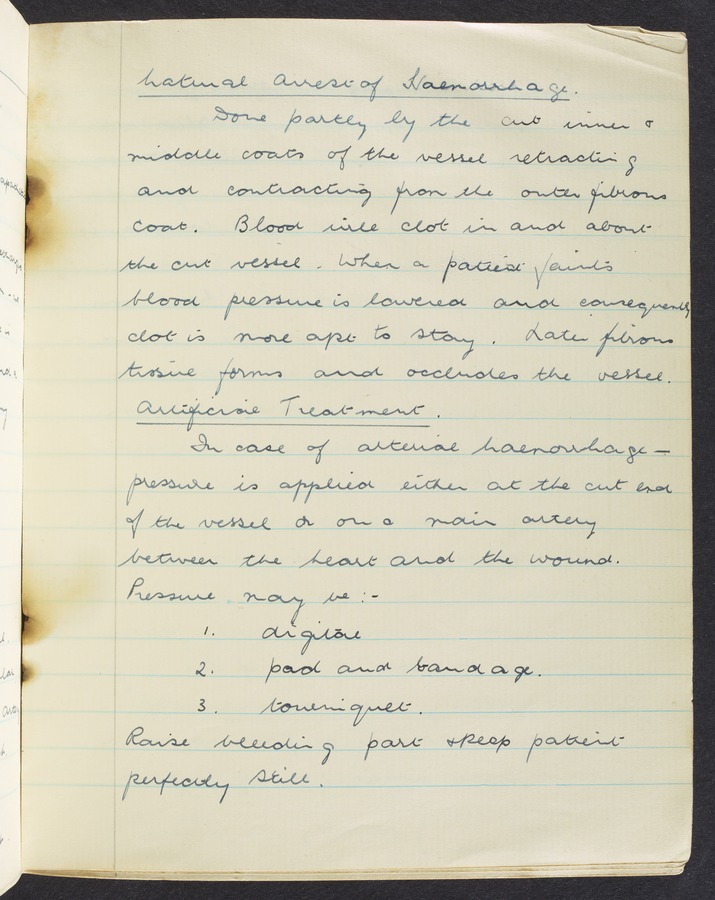 Natural Arrest of Haemorrhage.
Done partly by the cut inner &
middle coats of the vessel retracting
and contracting from the outer fibrous
coat. Blood will clot in and about
the cut vessel. When a patient faints
blood pressure is lowered and consequently
clot is more apt to stay. Later fibrous
tissue forms and occludes the vessel.
Artificial Treatment.
In case of arterial haemorrhage —
pressure is applied either at the cut end
of the vessel or on a main artery
between the heart and the wound.
Pressure may be :-
1. digital
2. pad and bandage.
3. tourniquet.
Raise bleeding part & keep patient
perfectly still.